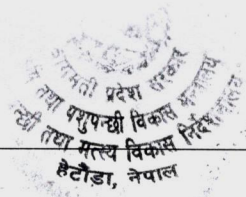 बागमती प्रदेश सरकार
तथा पशुपन्छी विकास मन्त्रालय
पन्छी तथा मत्स्य विकास निर्देशनालय
हेटौंडा, नेपाल